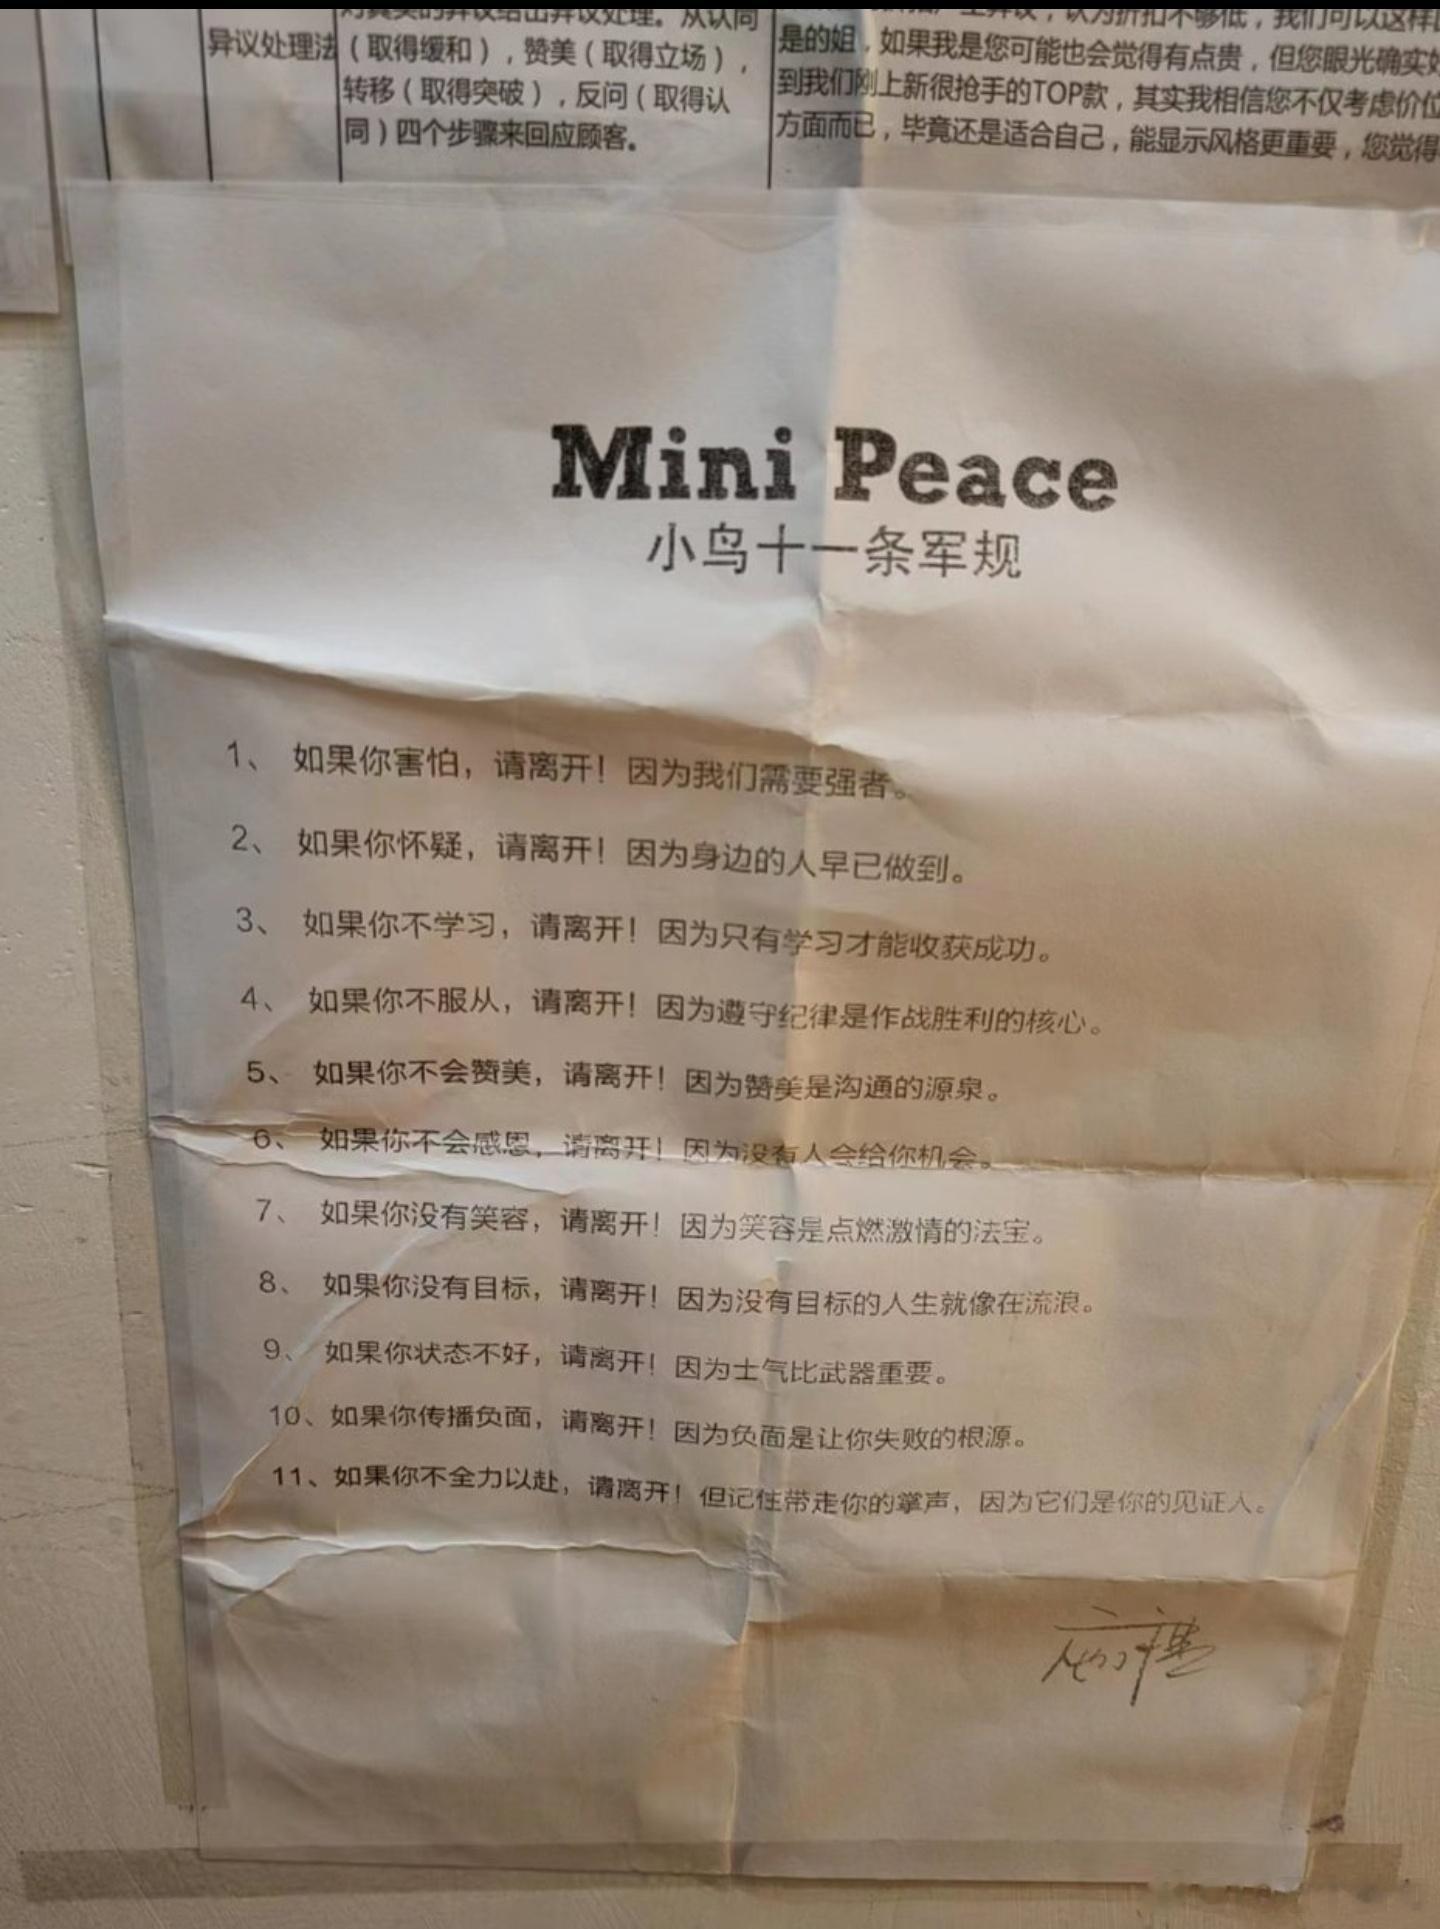 异议处理法
（取得缓和），赞美（取得立场），
转移（取得突破），反问（取得认
同）四个步骤来回应顾客。
是的姐，如果我是您可能也会觉得有点贵，但您眼光确实好
到我们刚上新很抢手的TOP款，其实我相信您不仅考虑价位
方面而已，毕竟还是适合自己，能显示风格更重要，您觉得
Mini Peace
小鸟十一条军规
1、 如果你害怕，请离开！因为我们需要强者。
2、 如果你怀疑，请离开！因为身边的人早已做到。
3、 如果你不学习，请离开！因为只有学习才能收获成功。
4、 如果你不服从，请离开！因为遵守纪律是作战胜利的核心。
5、 如果你不会赞美，请离开！因为赞美是沟通的源泉。
6、 如果你不会感恩，请离开！因为没有人会给你机会。
7、 如果你没有笑容，请离开！因为笑容是点燃激情的法宝。
8、 如果你没有目标，请离开！因为没有目标的人生就像在流浪。
9、 如果你状态不好，请离开！因为士气比武器重要。
10、如果你传播负面，请离开！因为负面是让你失败的根源。
11、如果你不全力以赴，请离开！但记住带走你的掌声，因为它们是你的见证人。